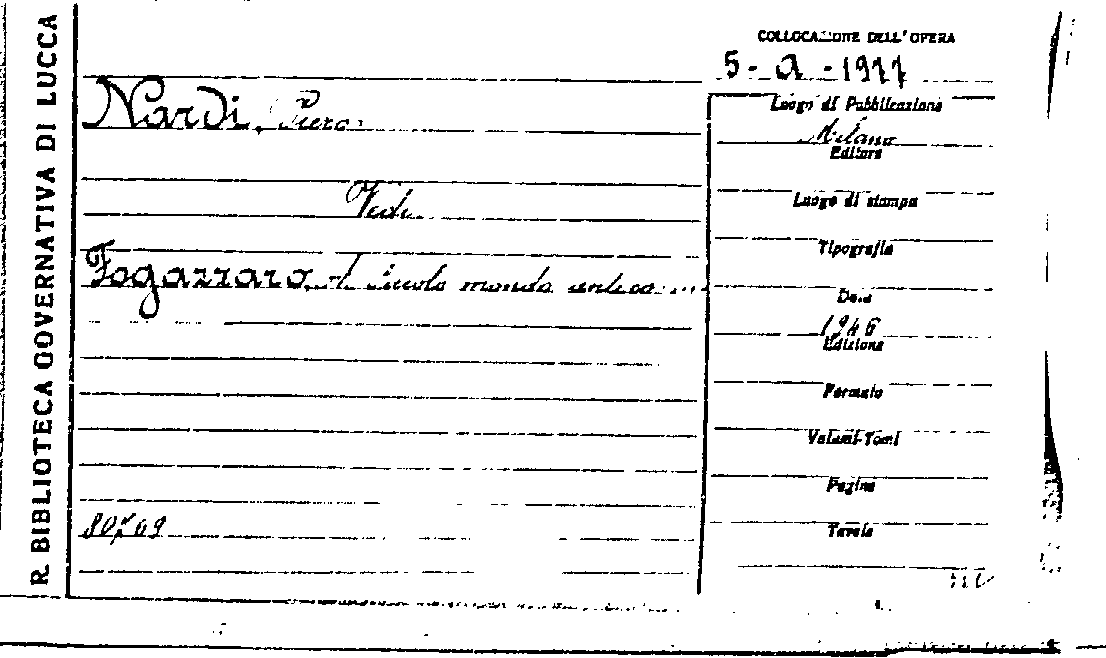 R. BIBLIOTECA GOVERNATIVA DI LUCCA
COLLOCAZIONE DELL'OPERA
5 - a - 1977
Nardi, Piero
Luogo di Pubblicazione
Milano
Editore
Vedi
Luogo di stampa
Tipografia
Fogazzaro, A. Piccolo mondo antico ...
Data
1946
Edizione
Formato
Volumi-Tomi
Pagine
Tavole